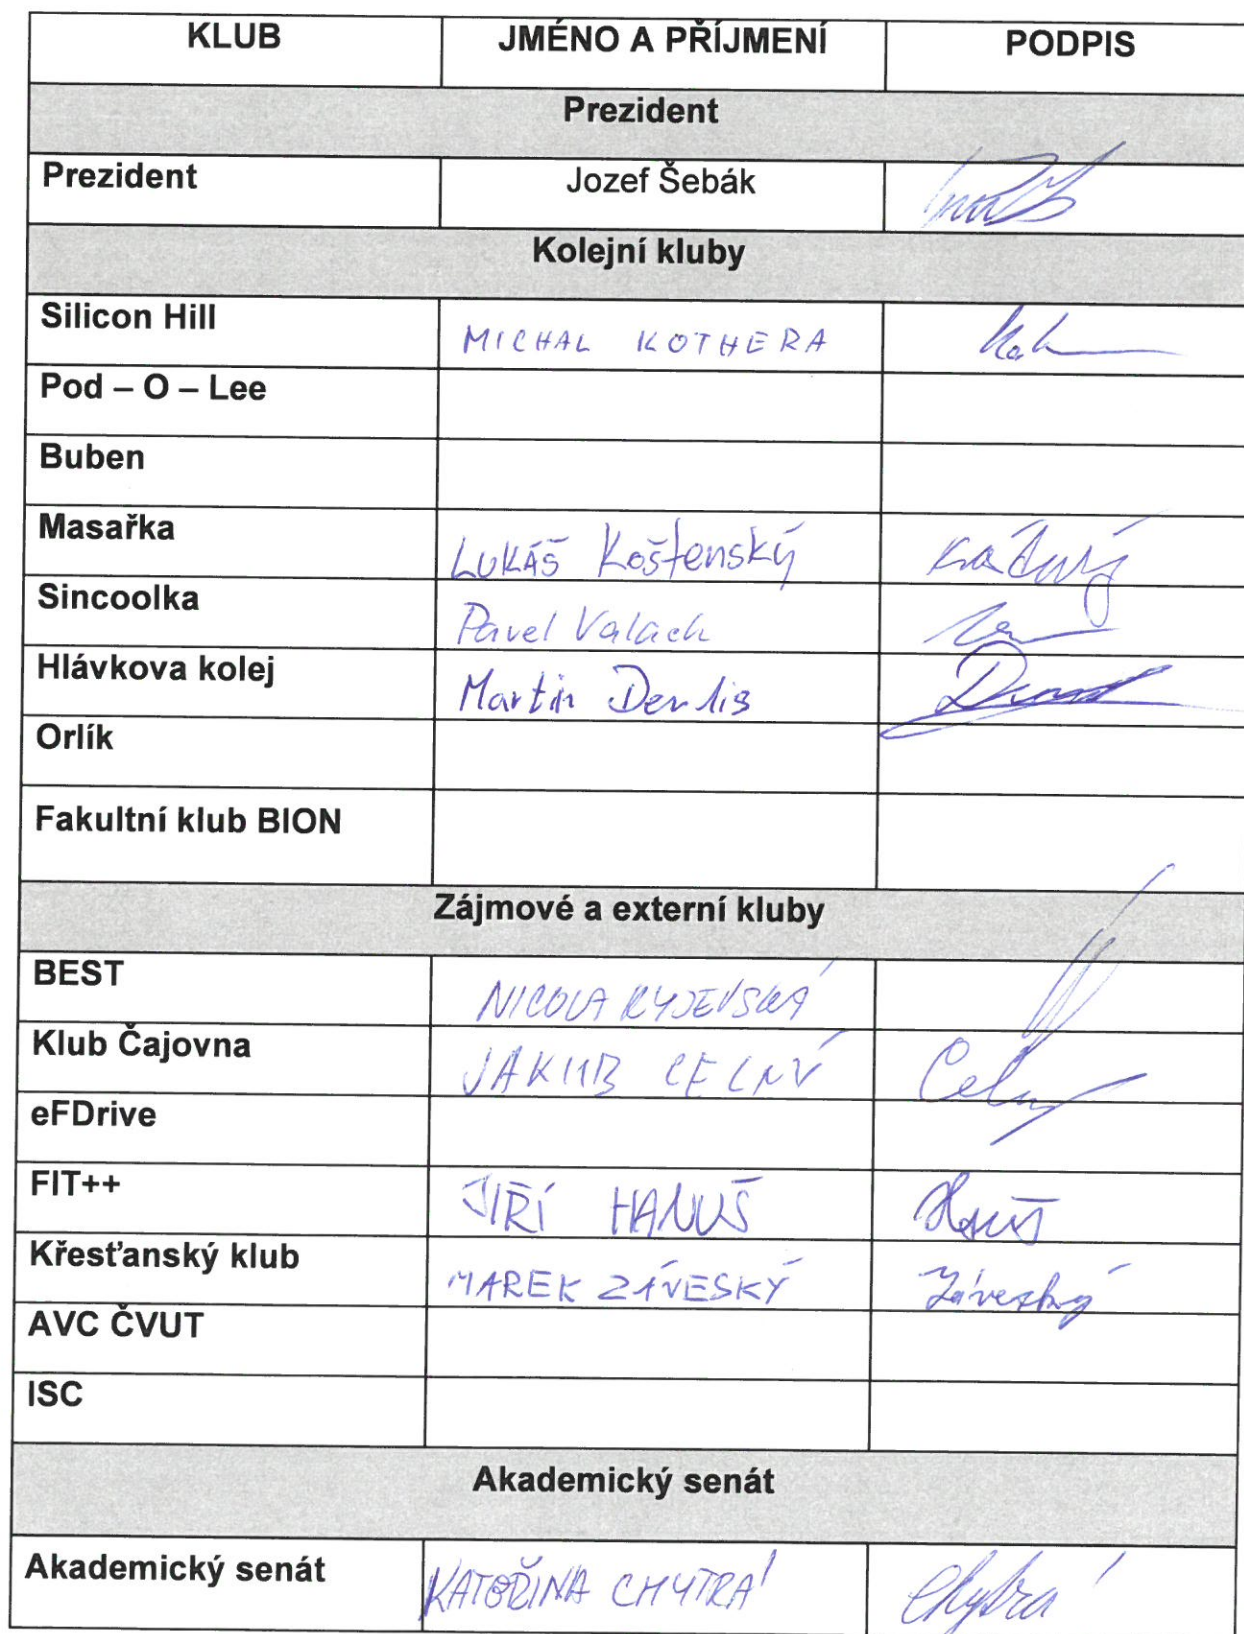 KLUB JMÉNO A PŘÍJMENÍ PODPIS
Prezident
Prezident Jozef Šebák
Kolejní kluby
Silicon Hill MICHAL KOTHERA
Pod – O – Lee
Buben
Masařka LUKÁŠ Koštenský
Sincoolka Pavel Valach
Hlávkova kolej Martin
Orlík
Fakultní klub BION
Zájmové a externí kluby
BEST NICOLA
Klub Čajovna JAKUB CELNÝ Celný
eFDrive
FIT++ JIŘÍ HANUŠ Hanuš
Křesťanský klub MAREK ZÁVESKÝ Záveský
AVC ČVUT
ISC
Akademický senát
Akademický senát KATEŘINA CHYTRÁ Chytrá